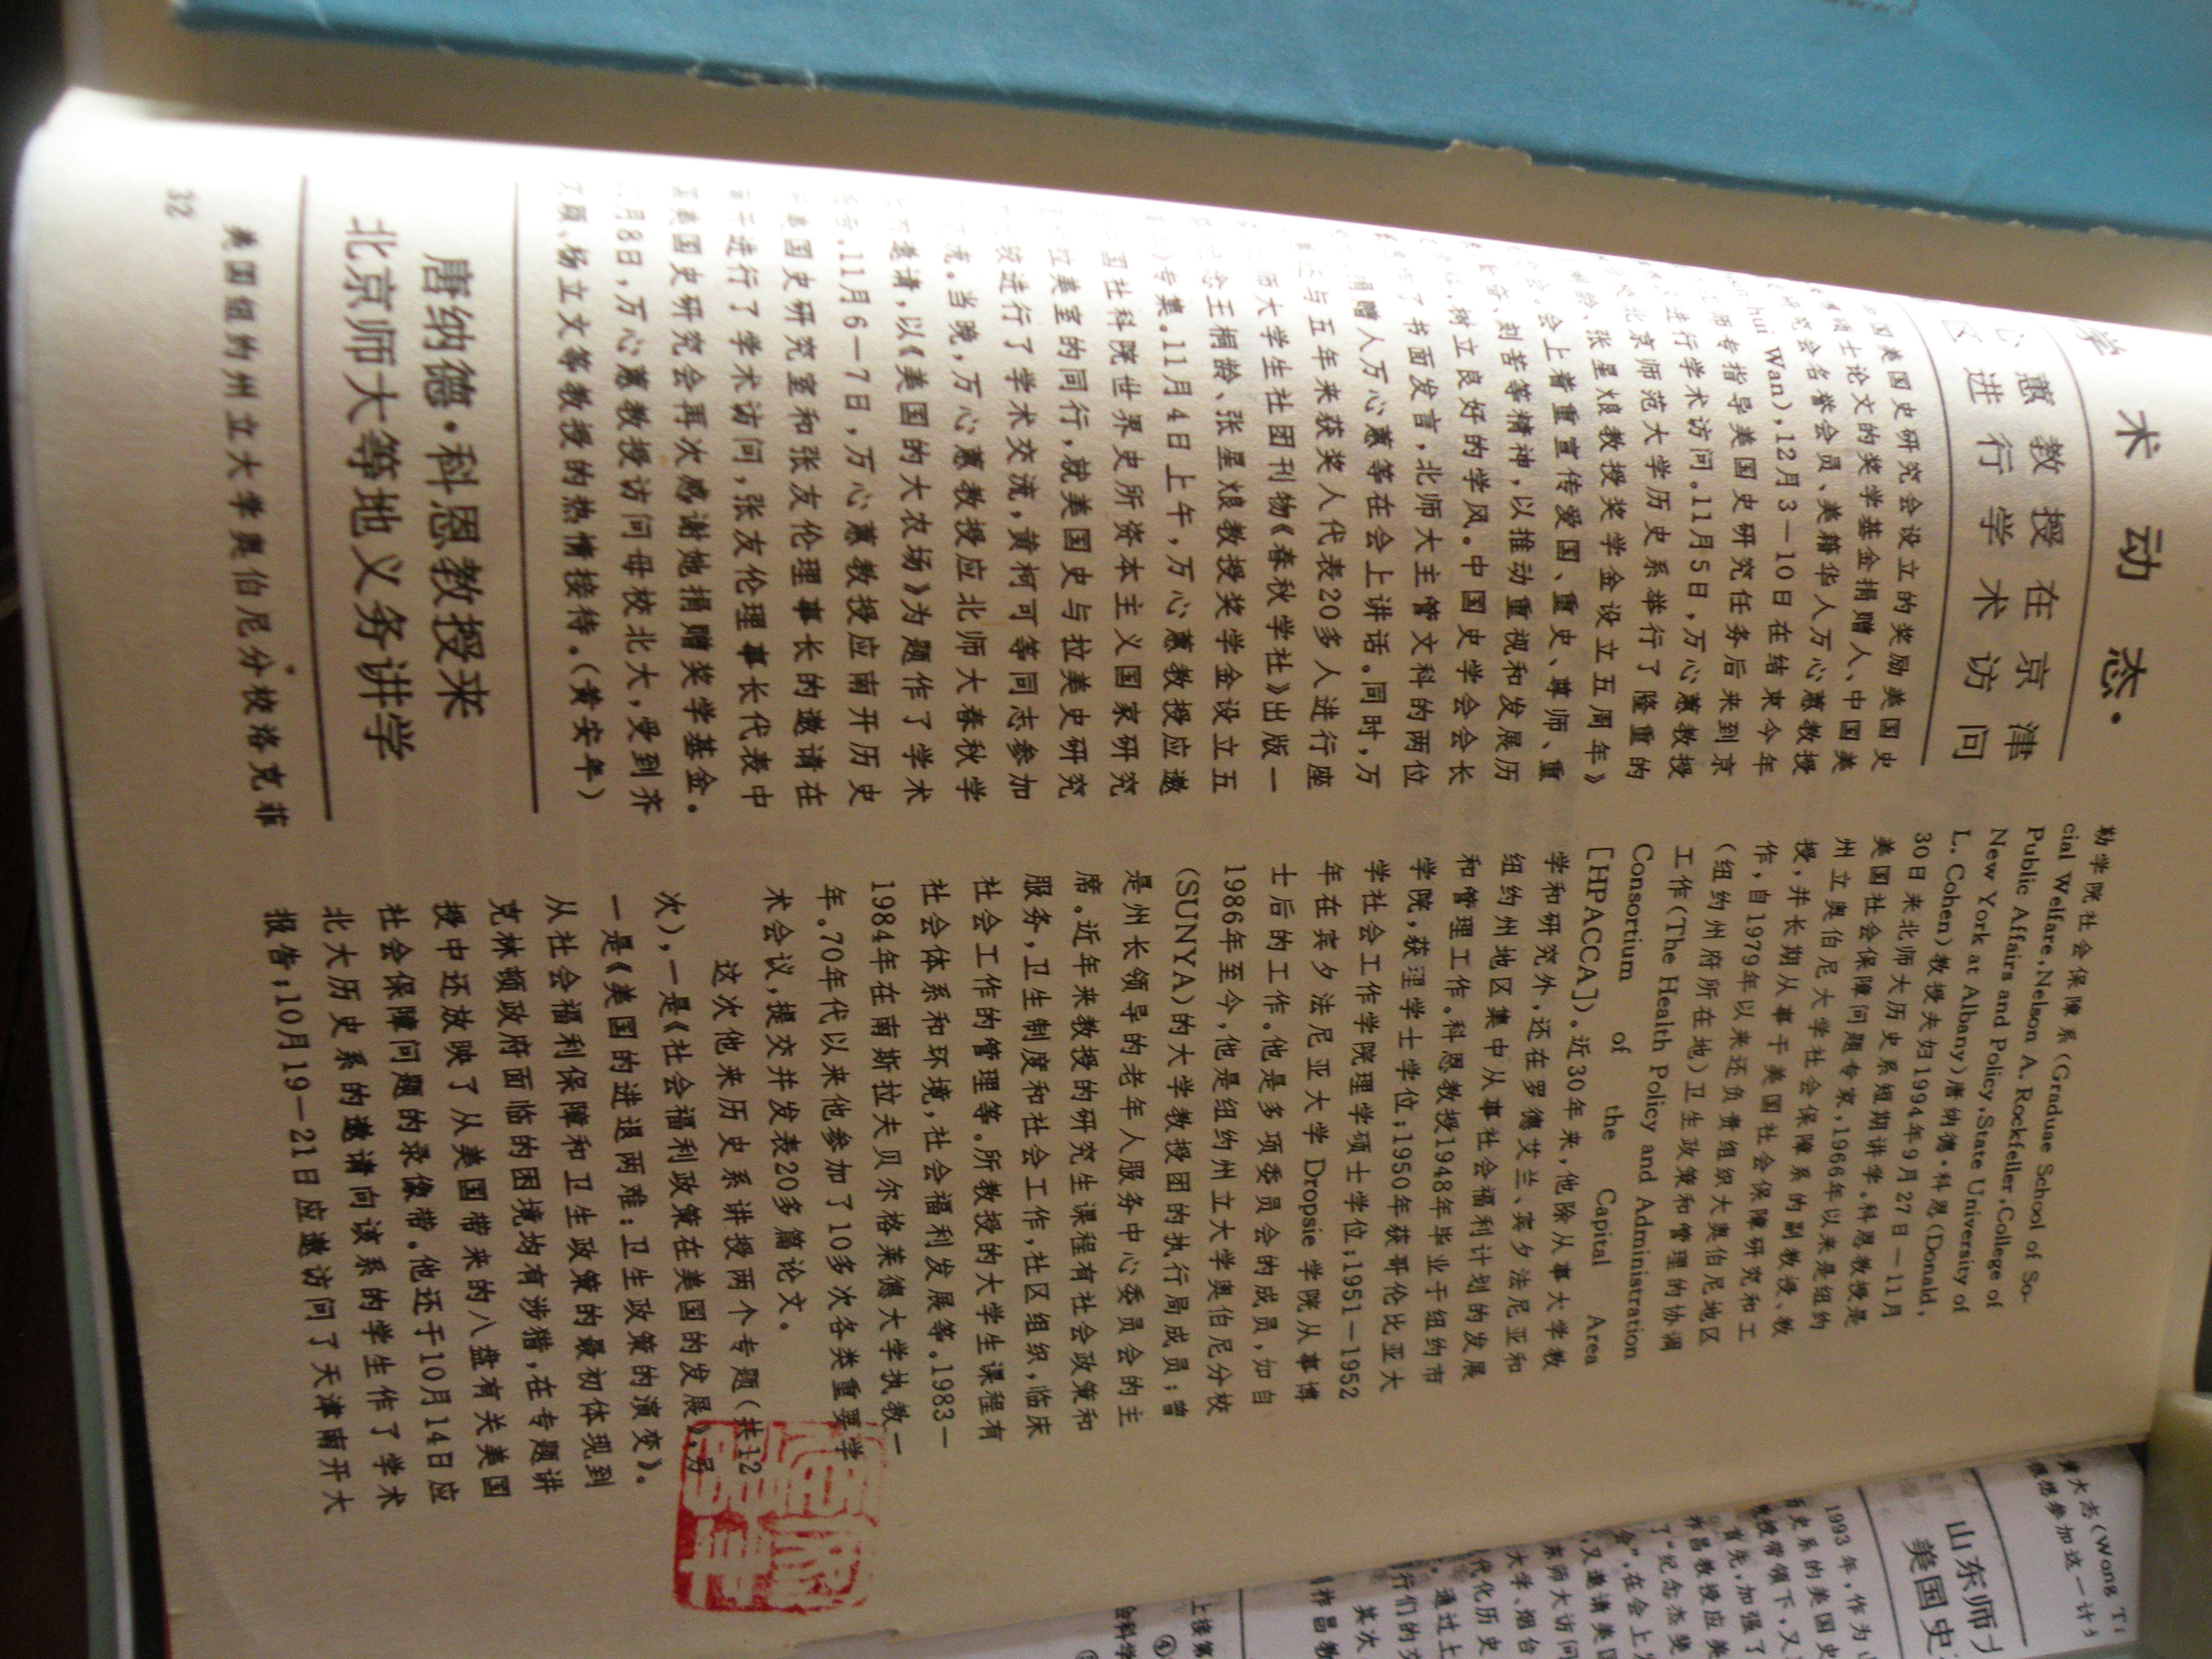 学术动态·
心蕙教授在京津
区进行学术访问
中国美国史研究会设立的奖励美国史
硕士论文的奖学基金捐赠人、中国美
究会名誉会员、美籍华人万心蕙教授
hui Wan),12月3—10日在结束今年
师专指导美国史研究任务后来到京
进行学术访问。11月5日,万心蕙教授
北京师范大学历史系举行了隆重的
张星烺教授奖学金设立五周年》
会上着重宣传爱国、重史、尊师、重
刘苦等精神,以推动重视和发展历
树立良好的学风。中国史学会会长
了书面发言,北师大主管文科的两位
捐赠人万心蕙等在会上讲话。同时,万
还与五年来获奖人代表20多人进行座
师大学生社团刊物《春秋学社》出版一
念王桐龄、张星烺教授奖学金设立五
专集。11月4日上午,万心蕙教授应邀
国社科院世界史所资本主义国家研究
拉美室的同行,就美国史与拉美史研究
进行了学术交流,黄柯可等同志参加
流。当晚,万心蕙教授应北师大春秋学
邀请,以《美国的大农场》为题作了学术
11月6—7日,万心蕙教授应南开历史
美国史研究室和张友伦理事长的邀请在
进行了学术访问,张友伦理事长代表中
国美国史研究会再次感谢她捐赠奖学基金。
月8日,万心蕙教授访问母校北大,受到齐
文颖、杨立文等教授的热情接待。(黄安年)
唐纳德·科恩教授来
北京师大等地义务讲学
美国纽约州立大学奥伯尼分校洛克菲
32
勒学院社会保障系(Graduae School of So-
cial Welfare,Nelson A. Rockfeller,College of
Public Affairs and Policy,State University of
New York at Albany)唐纳德·科恩(Donald,
L. Cohen)教授夫妇1994年9月27日—11月
30日来北师大历史系短期讲学。科恩教授是
美国社会保障问题专家,1966年以来是纽约
州立奥伯尼大学社会保障系的副教授、教
授,并长期从事于美国社会保障研究和工
作,自1979年以来还负责组织大奥伯尼地区
(纽约州府所在地)卫生政策和管理的协调
工作(The Health Policy and Administration
Consortium of the Capital Area
[HPACCA])。近30年来,他除从事大学教
学和研究外,还在罗德艾兰、宾夕法尼亚和
纽约州地区集中从事社会福利计划的发展
和管理工作。科恩教授1948年毕业于纽约市
学院,获理学士学位;1950年获哥伦比亚大
学社会工作学院理学硕士学位;1951—1952
年在宾夕法尼亚大学 Dropsie 学院从事博
士后的工作。他是多项委员会的成员,如自
1986年至今,他是纽约州立大学奥伯尼分校
(SUNYA)的大学教授团的执行局成员;曾
是州长领导的老年人服务中心委员会的主
席。近年来教授的研究生课程有社会政策和
服务,卫生制度和社会工作,社区组织,临床
社会工作的管理等。所教授的大学生课程有
社会体系和环境,社会福利发展等。1983—
1984年在南斯拉夫贝尔格莱德大学执教一
年。70年代以来他参加了10多次各类重要学
术会议,提交并发表20多篇论文。
这次他来历史系讲授两个专题(共12
次),一是《社会福利政策在美国的发展》,另
一是《美国的进退两难:卫生政策的演变》。
从社会福利保障和卫生政策的最初体现到
克林顿政府面临的困境均有涉猎,在专题讲
授中还放映了从美国带来的八盘有关美国
社会保障问题的录像带。他还于10月14日应
北大历史系的邀请向该系的学生作了学术
报告;10月19—21日应邀访问了天津南开大
黄大志(Wong T
很想参加这一计
山东师
美国史
1993年,作为
历史系的美国史
教授带领下,又
首先,加强了
祚昌教授应美
了“纪念杰斐
会”,在会上
又邀请美国
东师大访问
大学、烟台
代化历史
通过上
行们的
其次
祚昌教
上接第
④
会科学